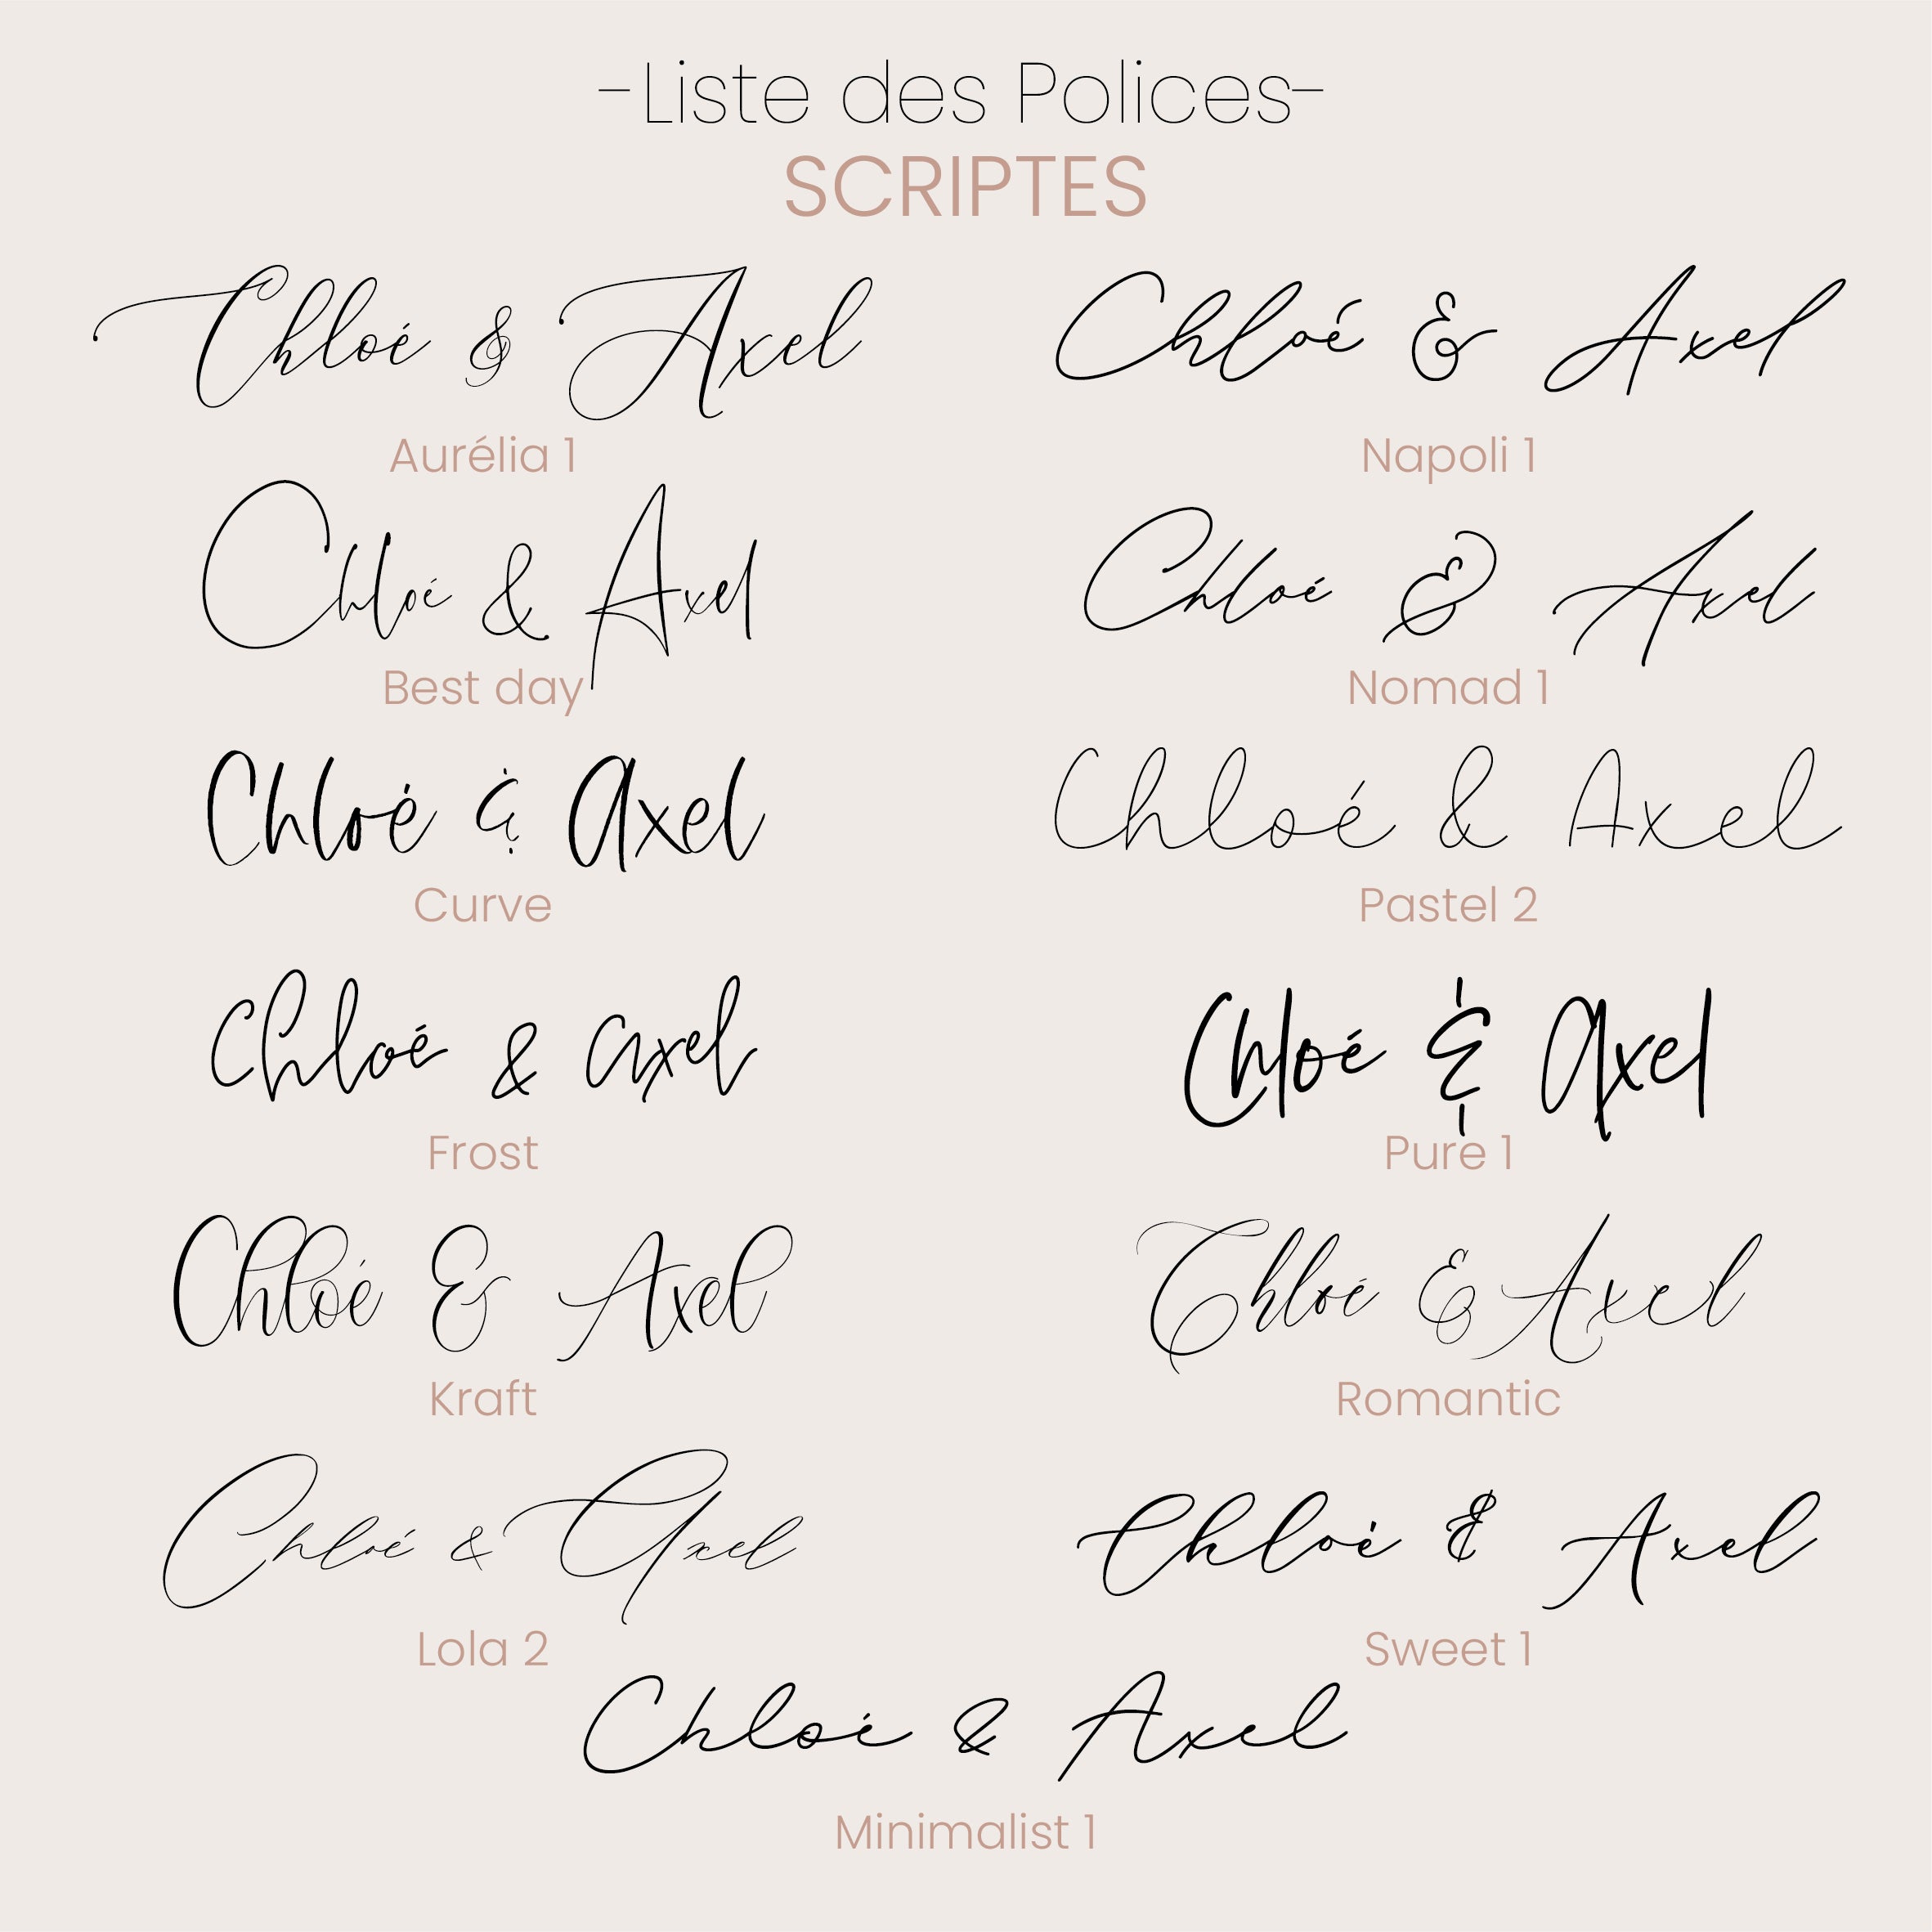 -Liste des Polices-
SCRIPTES
Chloé & Axel
Aurélia 1
Chloé & Axel
Napoli 1
Chloé & Axel
Best day
Chloé & Axel
Nomad 1
Chloé & Axel
Curve
Chloé & Axel
Pastel 2
Chloé & Axel
Frost
Chloé & Axel
Pure 1
Chloé & Axel
Kraft
Chloé & Axel
Romantic
Chloé & Axel
Lola 2
Chloé & Axel
Sweet 1
Chloé & Axel
Minimalist 1